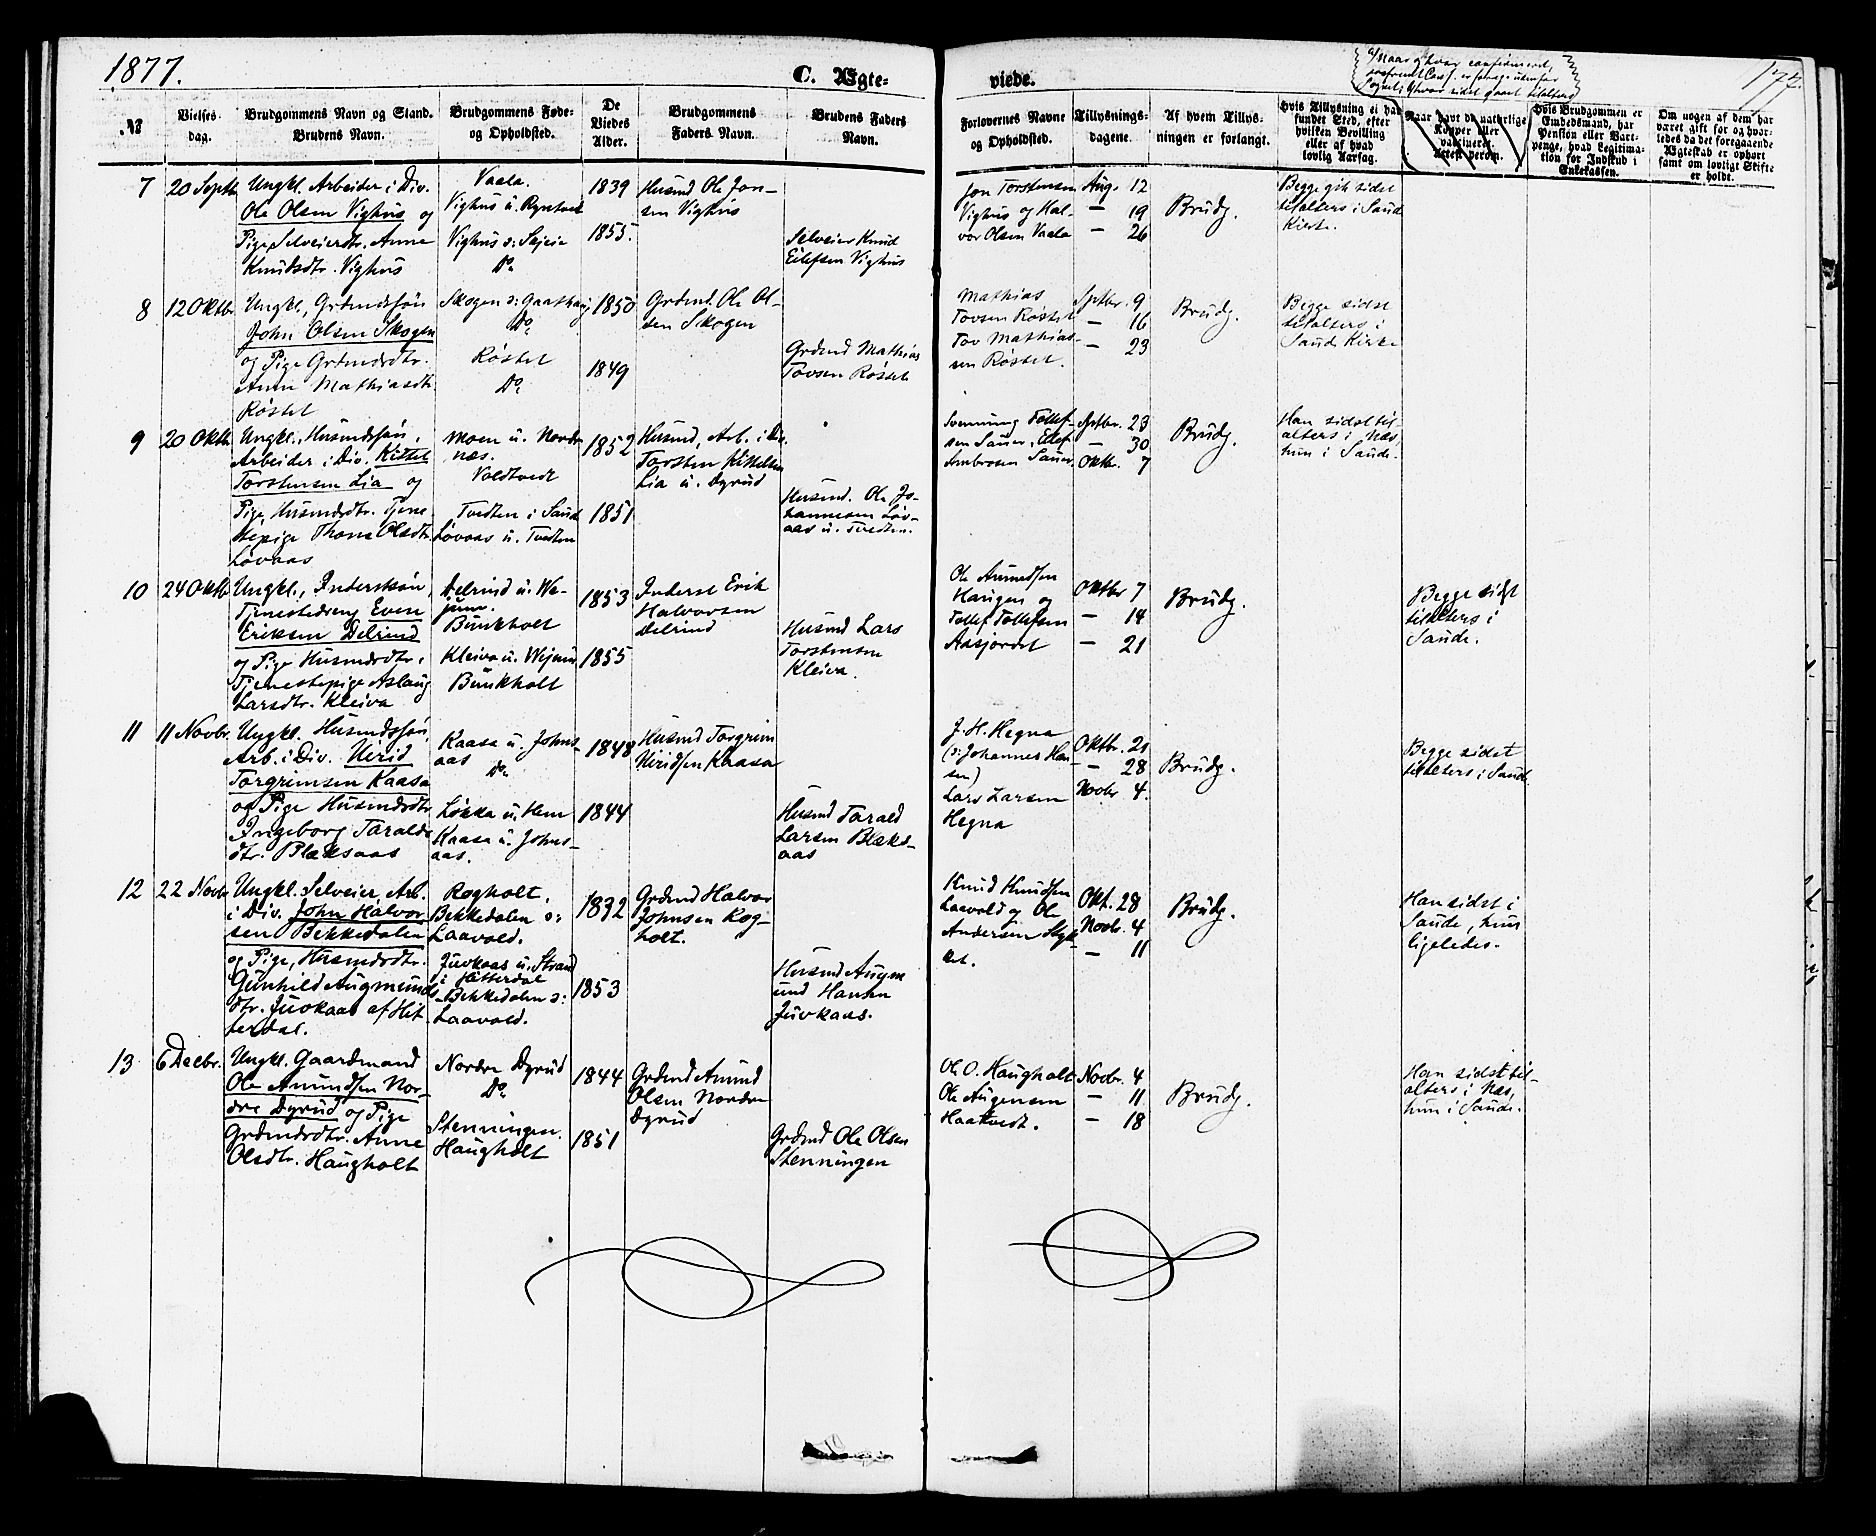 1877.
C. Ægte-
viede.
177.
№
Vielses-
dag.
Brudgommens Navn og Stand.
Brudens Navn.
Brudgommens Føde-
og Opholdsted.
De
Viedes
Alder.
Brudgommens
Faders Navn.
Brudens Faders
Navn.
Forlovernes Navne
og Opholdsted.
Tillysnings-
dagene.
Af hvem Tillys-
ningen er forlangt.
Hvis Tillysning ei har
fundet Sted, efter
hvilken Bevilling
eller af hvad
lovlig Aarsag.
Naar have de naturlige
Kopper eller
vaccineret.
Attest derom.
Hvis Brudgommen er
Embedsmand, har
Pension eller Vart-
penge, hvad Legitima-
tion for Indskud i
Enkekassen.
Om nogen af dem har
været gift før og hvor-
ledes da det foregaaende
Ægteskab er ophørt
samt om lovligt Skifte
er holdt.
7
20 Septb
Ungkl. Arbeider i Div.
Ole Olsen Vighus og
Pige Selveierdtr. Anne
Knudsdtr. Vighus
Vaala.
Vighus u.
Vighus
Do
1839
1855.
Husmd Ole Jon-
sen Vighus
Selveier Knud
Eilefsen Vighus
Jon Torstensen
Vighus og Hal-
vor Olsen Vaala
Aug. 12
— 19
— 26
Brudg.
Begge gik sidst
tilalters i Saude
Kirke.
8
12 Oktbr
Ungkl., Grdmdssøn
John Olsen Skogen
og Pige Grdmdsdtr.
Anne Mathiasdtr
Røstet
Skogen
Do
Røstet
Do
1850
1849
Grdmd. Ole Ol-
sen Skogen
Grdmd Mathias
Tovsen Røstet
Mathias
Tovsen Røstet
Tov Mathias-
sen Røstet.
Sptbr. 9
— 16
— 23
Brudg.
Begge sidst
tilalters i
Saude Kirke
9
20 Oktb.
Ungkl., Husmdssøn,
Arbeider i Div. Kittel
Torstensen Lia og
Pige, Husmdsdtr. Tjene-
stepige Thone Olsdtr.
Løvaas
Moen u. Nordre
næs.
Voldtvedt
Tvedten i Saude
Løvaas u. Tvedten
1852
1851
Husmd, Arb. i Div.
Torsten Kittelsen
Lia u. Dyrud
Husmd. Ole Jo-
hannesen Løv-
aas u. Tvedten.
Svenning Tollef-
sen Sauer, Ellef
Ambrosen Sauer.
Sptbr. 23
— 30
Oktbr. 7
Brudg.
Han sidst til-
alters i Næs,
hun i Saude.
10
24 Oktb
Ungkl., Inderstsøn,
Tjenestedreng Even
Eriksen Delrind
og Pige Husmdsdtr.
Tjenestepige Aslaug
Larsdtr. Kleiva
Delrind u. We-
jum.
Bunkholt
Kleiva u. Wejum
Bunkholt
1853
1855
Inderst Erik
Halvorsen
Delrind
Husmd Lars
Torstensen
Kleiva.
Ole Amundsen
Haugen og
Tollef Tollefsen
Aasjordet
Oktbr 7
— 14
— 21
Brudg.
Begge sidst
tilalters i
Saude.
11
11 Novbr.
Ungkl. Husmdssøn,
Arb. i Div. Nirid
Torgrimsen Kaasa
og Pige Husmdsdtr
Ingeborg Taralds-
dtr. Blæksaas
Kaasa u. Johns-
aas
Do
Løkka u. Hem
Kaasa u. Johns-
aas.
1848
1844
Husmd Torgrim
Niridsen Kaasa
Husmd Tarald
Larsen Blæks-
aas
J. H. Hegna
(ɔ: Johannes Han-
sen)
Lars Larsen
Hegna
Oktbr. 21
— 28
Novbr 4.
Brudg.
Begge sidst
tilalters i Saude
12
22 Novbr
Ungkl. Selveier, Arb.
i Div. John Halvor-
sen Bekkedalen
og Pige, Husmdsdtr.
Gunhild Augmunds-
dtr. Juvkaas af Hit-
terdal.
Rogholt.
Bekkedalen ɔ:
Laavold.
Juvkaas u. Strand
i Hitterdal
Bekkedalen ɔ:
Laavold.
1832
1853
Grdmd Halvor
Johnsen Rog-
holt.
Husmd Augm
und Hansen
Juvkaas.
Knud Knudsen
Laavold og Ole
Andersen
Okt. 28
Novb. 4
— 11
Brudg.
Han sidst i
Saude, hun
ligeledes.
13
6 Decbr.
Ungkl. Gaardmand
Ole Amundsen Nor-
dre Dyrud og Pige
Grdmdsdtr. Anne
Olsdtr. Haugholt
Nordre Dyrud
Do
Stenningen.
Haugholt
1844
1851
Grdmd Amund
Olsen Nordre
Dyrud
Grdmd Ole Olsen
Stenningen
Ole O. Haugholt
Ole Augensen
Haatvedt.
Novbr. 4
— 11
— 18
Brudg.
Han sidst til-
alters i Næs,
hun i Saude.